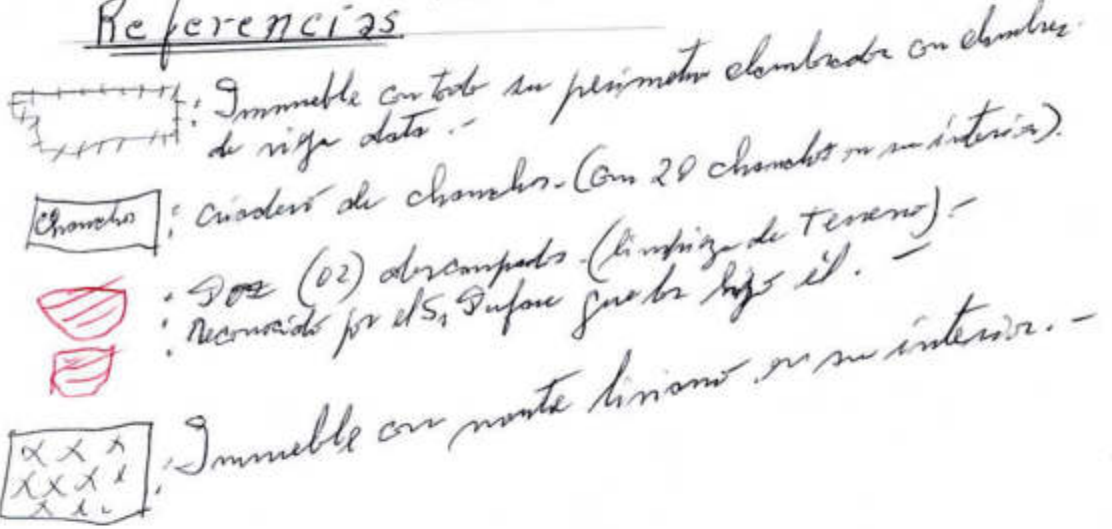 Referencias
: Inmueble con todo su perimetro alambrado con alambre
de vieja data.-
Chanchos : criadero de chanchos.-(Con 20 chanchos en su interior).
: Dos (02) descampados.-(limpieza de Terreno).-
: Reconocido por el Sr Dufour que lo hizo él. -
: Inmueble con monte liviano en su interior.-